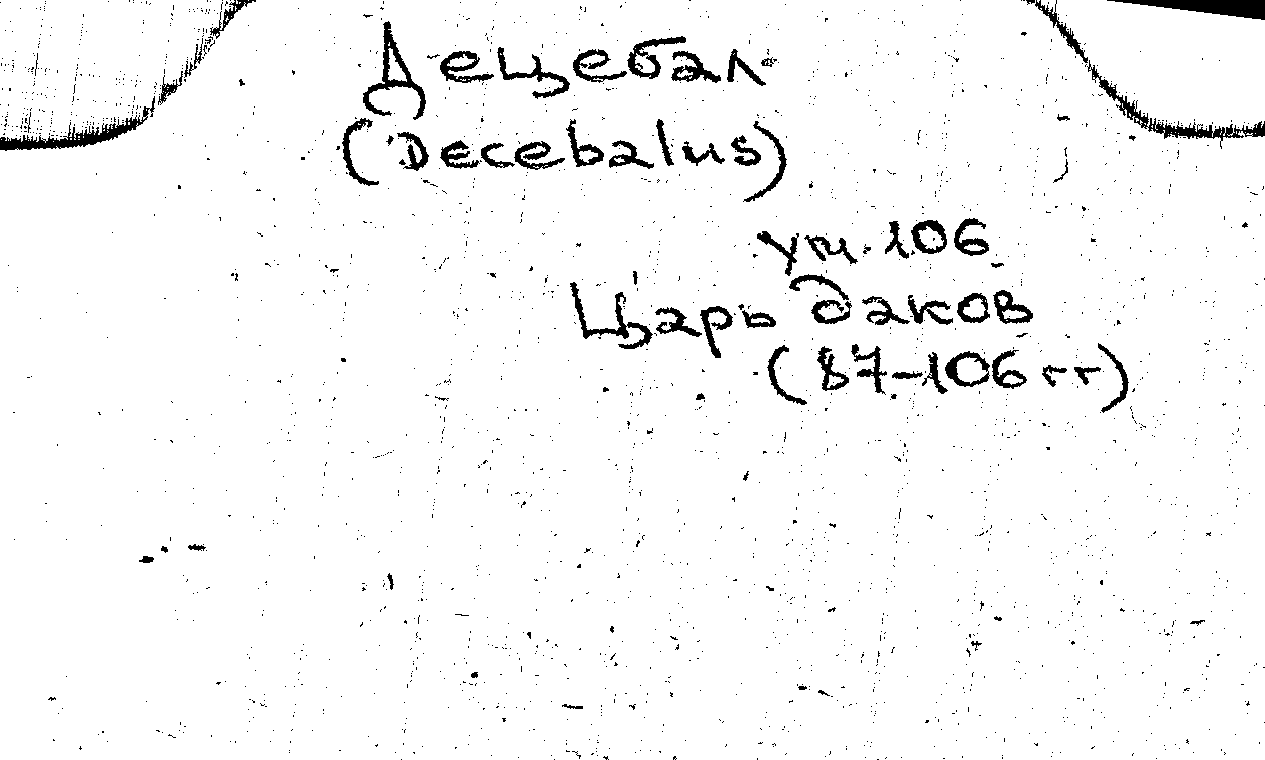 Децебал
(Decebalus)
ум. 106
Царь даков
(87-106 гг)